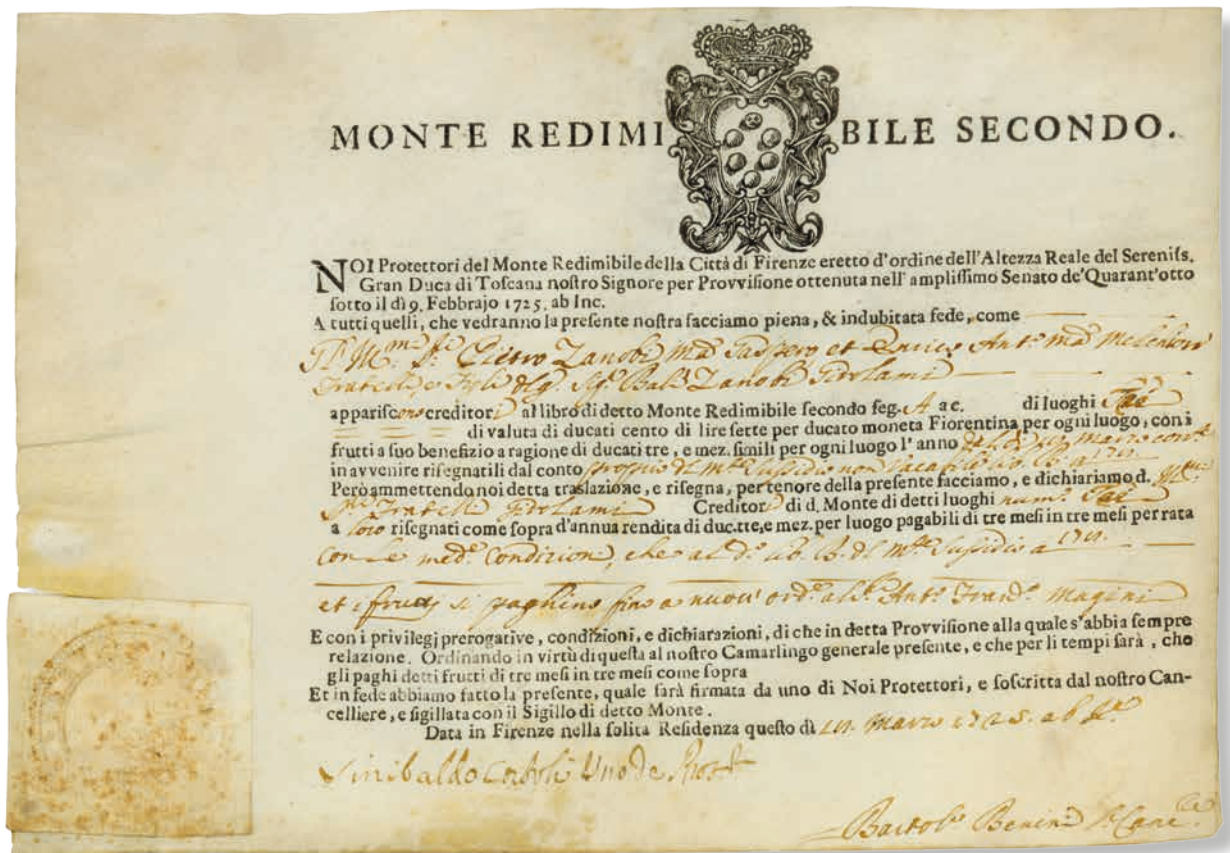 MONTE REDIMIBILE SECONDO.
NOI Protettori del Monte Redimibile della Città di Firenze eretto d'ordine dell'Altezza Reale del Sereniſs.
Gran Duca di Toſcana noſtro Signore per Provviſione ottenuta nell' ampliſſimo Senato de'Quarant'otto
ſotto il dì 9. Febbrajo 1725. ab Inc.
A tutti quelli, che vedranno la preſente noſtra facciamo piena, & indubitata fede, come
Pietro Zanobi Mᵃ Gaspero et Enrico Antᵒ Mᵃ Melchiorre
Fratelli, e Figli Sigʳ Balì Zanobi Girolami
appariſcono creditori al libro di detto Monte Redimibile ſecondo ſeg. A a c. di luoghi Tre
di valuta di ducati cento di lire ſette per ducato moneta Fiorentina per ogni luogo, con i
frutti a ſuo benefizio a ragione di ducati tre, e mez. ſimili per ogni luogo l' anno marzo
in avvenire riſegnatili dal conto proprio di Sussidio non vacabile
Però ammettendo noi detta traslazione, e riſegna, per tenore della preſente facciamo, e dichiariamo d.
Fratelli Girolami Creditori di d. Monte di detti luoghi numᵒ Tre
a loro riſegnati come ſopra d'annua rendita di duc. tre, e mez. per luogo pagabili di tre meſi in tre meſi per rata
con le medᵉ condizioni, che al Dᵒ Sussidio a
et i frutti si paghino fino a nuovo ordᵉ al Sʳ Antᵒ Franᶜᵒ Magini
E con i privilegj prerogative, condizioni, e dichiarazioni, di che in detta Provviſione alla quale s'abbia ſempre
relazione. Ordinando in virtù di queſta al noſtro Camarlingo generale preſente, e che per li tempi ſarà, che
gli paghi detti frutti di tre meſi in tre meſi come ſopra
Et in fede abbiamo fatto la preſente, quale ſarà firmata da uno di Noi Protettori, e ſoſcritta dal noſtro Can-
celliere, e ſigillata con il Sigillo di detto Monte.
Data in Firenze nella ſolita Reſidenza queſto dì marzo 1725. ab Iⁿᶜ
Sinibaldo Uno de
Bartolᵒ Benini Canᶜᵉ